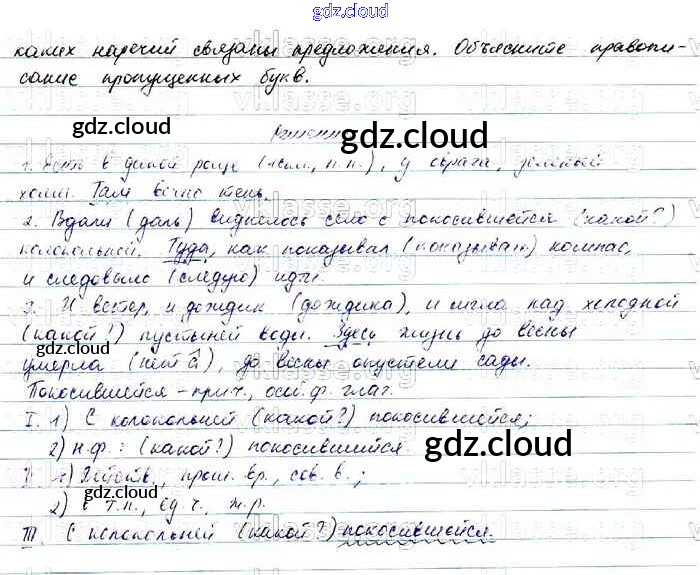 gdz.cloud
каких наречий связаны предложения. Объясните правопи-
сание пропущенных букв.
gdz.cloud
gdz.cloud
1. Есть в дикой роще , у оврага, зеленый
холм. Там вечно тень.
2. Вдали (даль) виднелось село с покосившейся (какой?)
колокольней. Туда, как показывал (показываю) компас,
и следовало (следую) идти.
3. И ветер, и дождик (дождика), и мгла над холодной
(какой?) пустыней воды. Здесь жизнь до весны
умерла (нет а), до весны опустели сады.
gdz.cloud
gdz.cloud
Покосившейся – прич., особ. ф. глаг.
I. 1) С колокольней (какой?) покосившейся;
2) н.ф.: (какой?) покосившийся.
gdz.cloud
1) Действ., прош. вр., сов. в.;
gdz.cloud
2) в т.п., ед.ч., ж.р.
III. С колокольней (какой?) покосившейся.
gdz.cloud